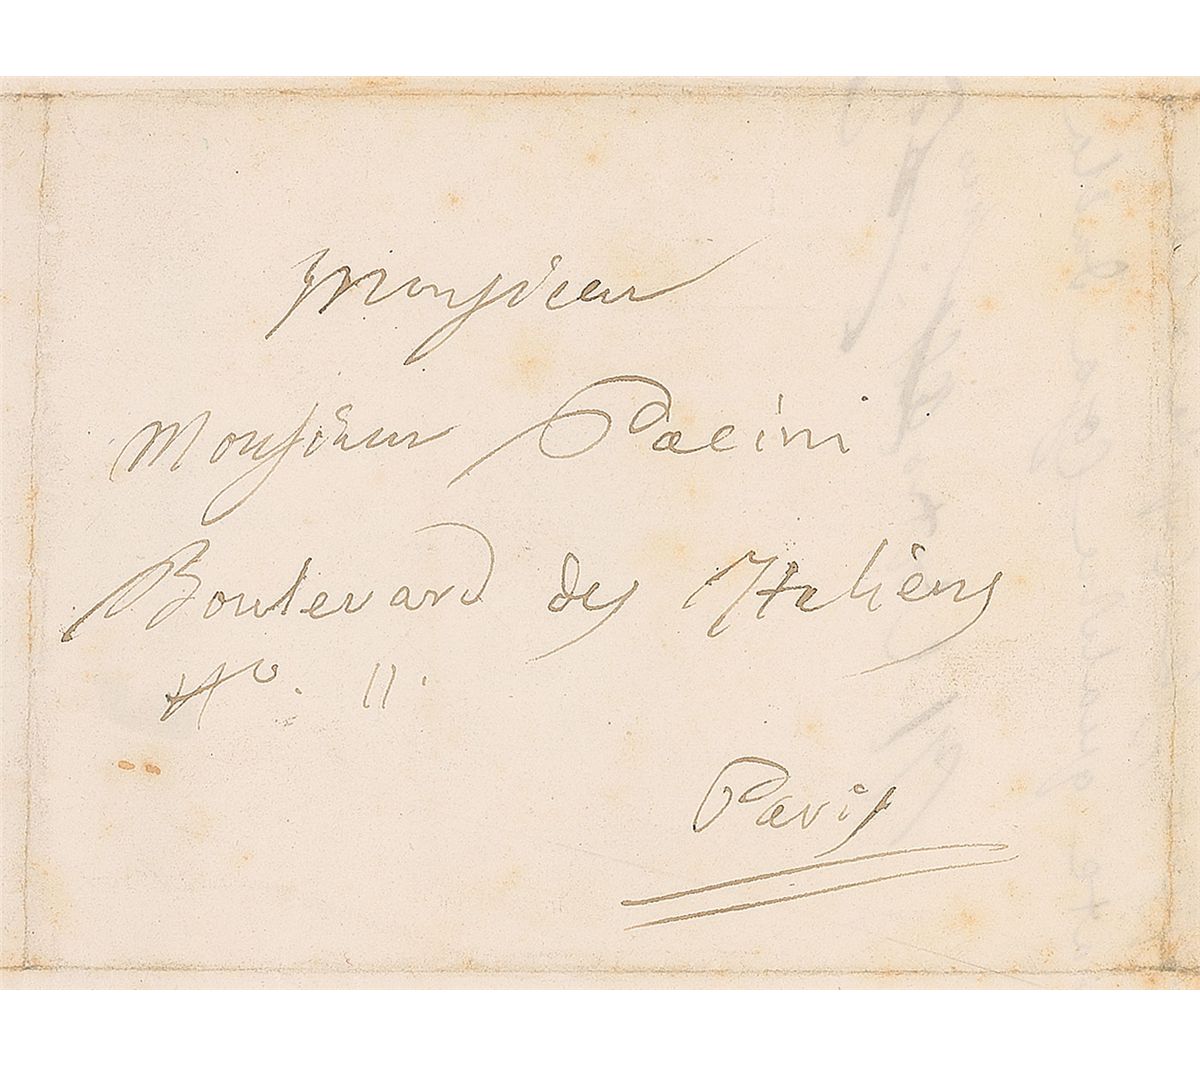 Monsieur
Monsieur Pacini
Boulevard des Italiens
No. 11.
Paris